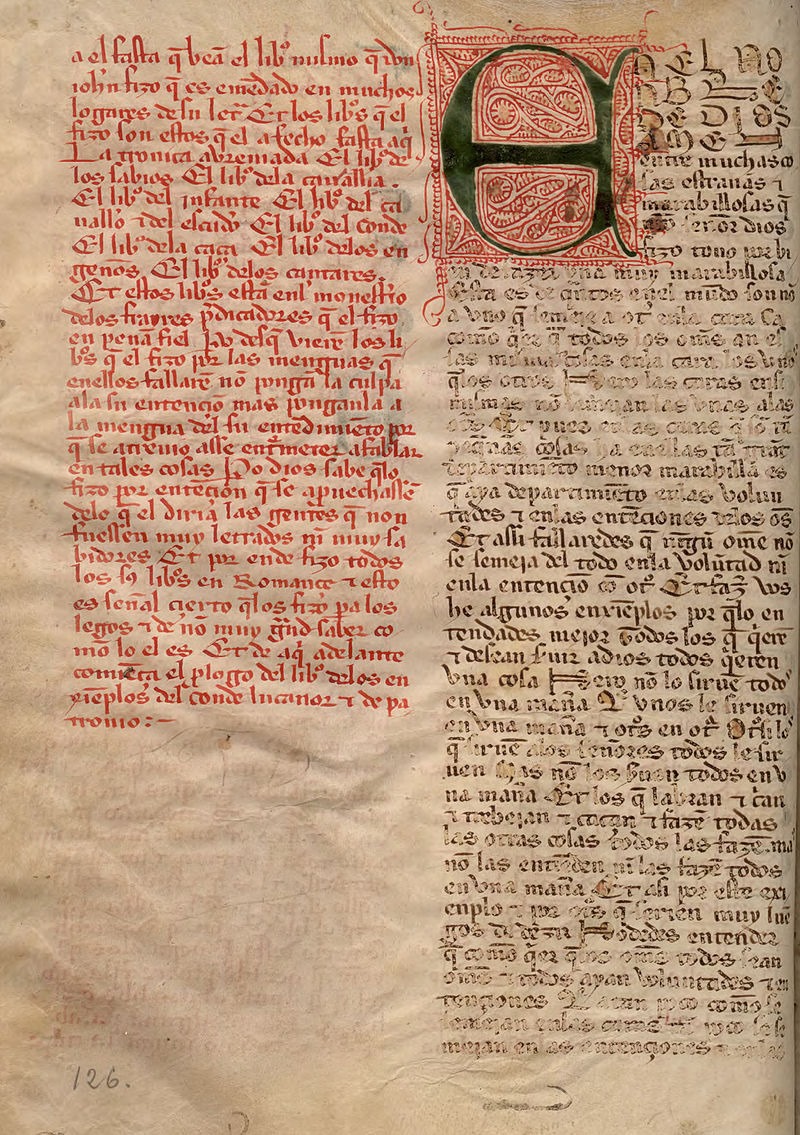 a el fasta q̄ veā el lib° mismo q̄ don
iohn fizo q̄ es emēdado en muchos
logares de su letrͣ Et los lib°s q̄ el
fizo son estos q̄ el a fecho fasta aq̄
La cronica abreuiada El lib° de
los sabios El lib° dela caualleria.
El lib° del infante El lib° del ca
uallo ⁊ del escudo El lib° del conde
El lib° dela caça El lib° delos en
genos, El lib° delos cantares.
Et estos lib°s estā enl monesterio
delos frayres p̄dicadores q̄ el fizo
en penafiel Po desq̄ viere los li
b°s q̄ el fizo por las menguas q̄
enellos fallarē nō pongā la culpa
ala su entencion mas ponganla a
la mengua del su entēdimiēto por
q̄ se atreuio asse entͬmeter a fablar
en tales cosas Po dios sabe q̄lo
fizo por entēcion q̄ se apuechassē
delo q̄ el diria las gentes q̄ non
fuessen muy letrados ni muy sa
bidores Et por ende fizo todos
los sꝰ lib°s en Romance ⁊ esto
es señal cierto q̄los fizo pa los
legos ⁊ de nō muy gͬnd saber co
mo lo el es Et de aq̄ adelante
comiēça el plogo del lib° delos en
xiēplos del conde lucanor ⁊ de pa
tronio:—
126.
EN EL NO
NBRE
DE DIOS
AMEN
entre muchas co
sas estrañas ⁊
marabillosas q̄
señor dios
fizo touo por bi
en de fazer vna muy marabillosa
esta es de q̄ntos enel mūdo son nō
a vno q̄ semeje a otͬ enla cara Ca
como q̄r q̄ todos los om̄s an es
sas mismas cosas enla cara los vno
q̄los otros Pero las caras ensi
mismas nō semejan las vnas alas
otͬs Et pues en las caras q̄ sō tā
peq̄nas cosas ha enellas tā grāt
departamiēto menor marabilla es
q̄ aya departamiēto enlas volun
tades ⁊ enlas entēciones delos om̄s
Et assi fallaredes q̄ nīgū ome nō
se semeja del todo enla volūtad ni
enla entencio cō otͬ Et faz vos
he algunos enxiēplos por q̄lo en
tendades mejor Todos los q̄ q̄ren
⁊ desean seruir a dios todos q̄eren
vna cosa Pero nō lo siruē todos
en vna maña Et vnos le siruen
en vna maña ⁊ otͬs en otͬ Otrosi los
q̄ siruē alos señores todos le sir
uen Mas nō los siruen todos en v
na maña Et los q̄ labran ⁊ cri an
⁊ trebejan ⁊ caçan ⁊ fazē todas
las otras cosas todos las fazē ma
nō las entiēden ni las fazē todos
en vna maña Et asi por este exi
enplo ⁊ por otͬs q̄ serien muy lue
gos de dezir Podedes entender
q̄ como q̄er q̄los om̄s todos sean
om̄s ⁊ todos ayan voluntades ⁊ en
tençiones Et atan poco como se
semejan enlas caras tan poco se se
mejan en las entençiones ⁊ enlas